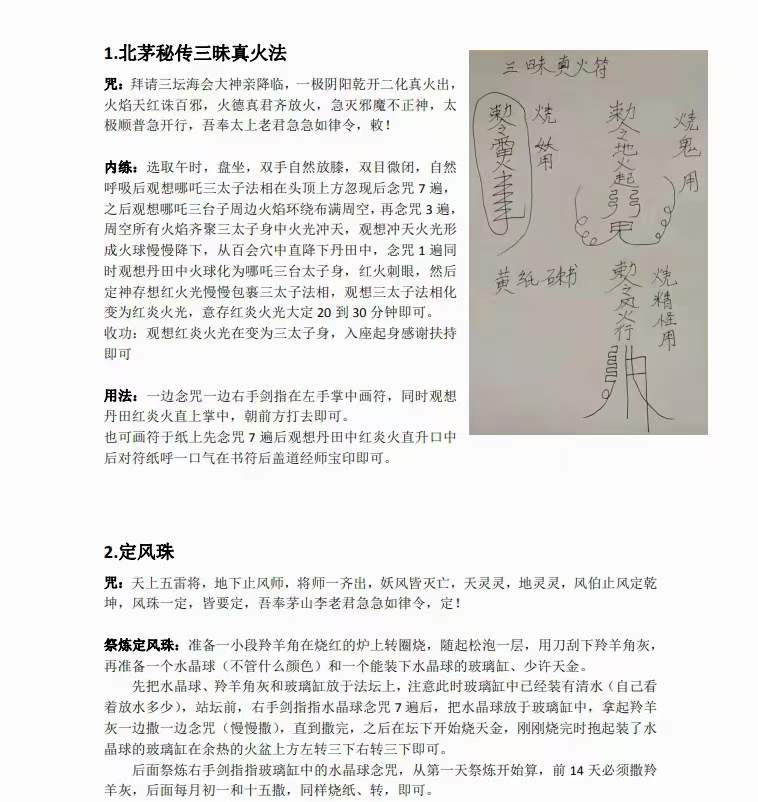 1.北茅秘传三昧真火法
咒：拜请三坛海会大神亲降临，一极阴阳乾开二化真火出，
火焰天红诛百邪，火德真君齐放火，急灭邪魔不正神，太
极顺普急开行，吾奉太上老君急急如律令，敕！
内练：选取午时，盘坐，双手自然放膝，双目微闭，自然
呼吸后观想哪吒三太子法相在头顶上方忽现后念咒 7 遍，
之后观想哪吒三台子周边火焰环绕布满周空，再念咒 3 遍，
周空所有火焰齐聚三太子身中火光冲天，观想冲天火光形
成火球慢慢降下，从百会穴中直降下丹田中，念咒 1 遍同
时观想丹田中火球化为哪吒三台太子身，红火刺眼，然后
定神存想红火光慢慢包裹三太子法相，观想三太子法相化
变为红炎火光，意存红炎火光大定 20 到 30 分钟即可。
收功：观想红炎火光在变为三太子身，入座起身感谢扶持
即可
用法：一边念咒一边右手剑指在左手掌中画符，同时观想
丹田红炎火直上掌中，朝前方打去即可。
也可画符于纸上先念咒 7 遍后观想丹田中红炎火直升口中
后对符纸呼一口气在书符后盖道经师宝印即可。
三昧真火符
敕令雷火
烧妖用
敕令地火起
烧鬼用
黄纸硃书
敕令风火行
烧精怪用
2.定风珠
咒：天上五雷将，地下止风师，将师一齐出，妖风皆灭亡，天灵灵，地灵灵，风伯止风定乾
坤，风珠一定，皆要定，吾奉茅山李老君急急如律令，定！
祭炼定风珠：准备一小段羚羊角在烧红的炉上转圈烧，随起松泡一层，用刀刮下羚羊角灰，
再准备一个水晶球（不管什么颜色）和一个能装下水晶球的玻璃缸、少许天金。
先把水晶球、羚羊角灰和玻璃缸放于法坛上，注意此时玻璃缸中已经装有清水（自己看
着放水多少），站坛前，右手剑指指水晶球念咒 7 遍后，把水晶球放于玻璃缸中，拿起羚羊
灰一边撒一边念咒（慢慢撒），直到撒完，之后在坛下开始烧天金，刚刚烧完时抱起装了水
晶球的玻璃缸在余热的火盆上方左转三下右转三下即可。
后面祭炼右手剑指指玻璃缸中的水晶球念咒，从第一天祭炼开始算，前 14 天必须撒羚
羊灰，后面每月初一和十五撒，同样烧纸、转，即可。